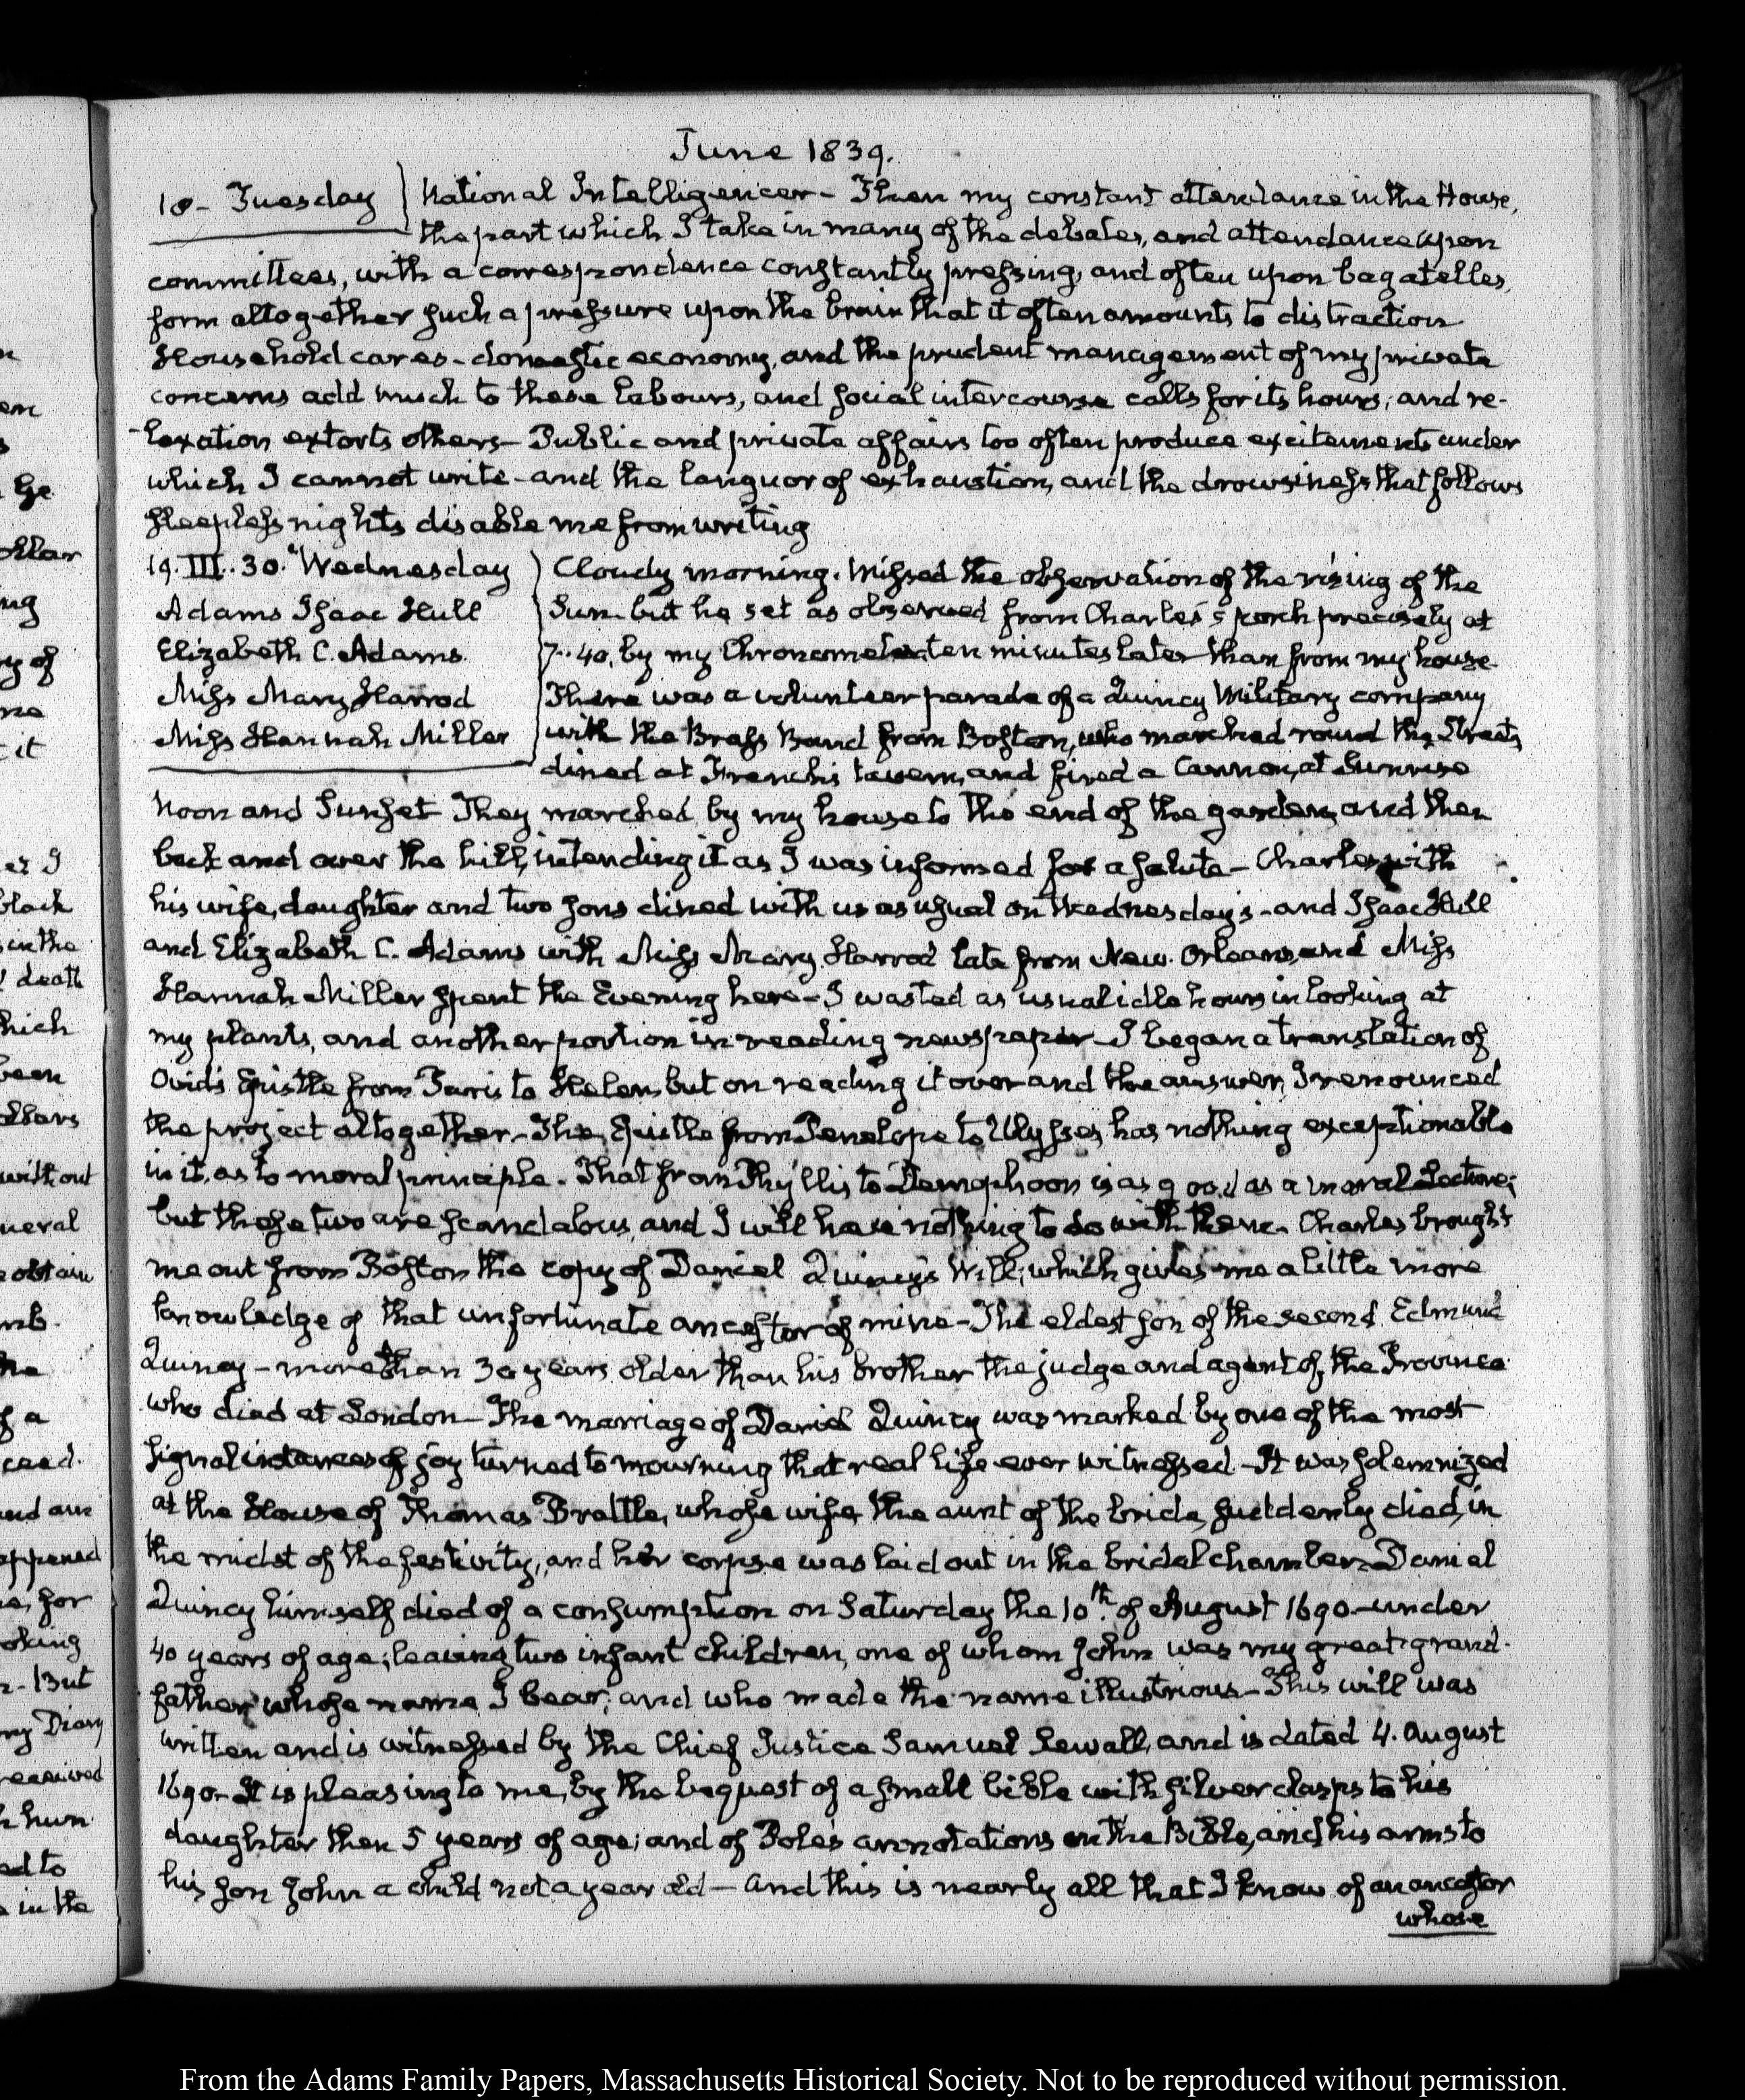 June 1839.
18 - Tuesday
National Intelligencer - Then my constant attendance in the House,
the part which I take in many of the debates, and attendance upon
committees, with a correspondence constantly pressing, and often upon bagatelles,
form altogether such a pressure upon the brain that it often amounts to distraction
Household cares - domestic economy, and the prudent management of my private
concerns add much to these labours, and social intercourse calls for its hours; and re-
-laxation extorts others - Public and private affairs too often produce excitements under
which I cannot write - and the languor of exhaustion, and the drowsiness that follows
sleepless nights disable me from writing
19. III. 30. Wednesday
Adams Isaac Hull
Elizabeth C. Adams.
Miss Mary Harrod
Miss Hannah Miller
Cloudy morning. Missed the observation of the rising of the
Sun but he set as observed from Charles's porch precisely at
7..40, by my Chronometer ten minutes later than from my house
There was a volunteer parade of a Quincy Military company
with the Brass Band from Boston, who marched round the Streets
dined at French's tavern, and fired a Cannon, at Sunrise
Noon and Sunset They marched by my house to the end of the garden, and then
back and over the hill, intending it as I was informed for a salute - Charles with
his wife, daughter and two sons dined with us as usual on Wednesday's - and Isaac Hull
and Elizabeth C. Adams with Miss Mary Harrod late from New Orleans, and Miss
Hannah Miller spent the Evening here - I wasted as usual idle hours in looking at
my plants, and another portion in reading newspapers - I began a translation of
Ovid's Epistle from Paris to Helen, but on reading it over and the answer, I renounced
the project altogether - The Epistle from Penelope to Ulysses, has nothing exceptionable
in it, as to moral principle. That from Phyllis to Demophoon is as good as a moral Lecture;
but these two are scandalous, and I will have nothing to do with them. Charles brought
me out from Boston the copy of Daniel Quincy's Will, which gives me a little more
knowledge of that unfortunate ancestor of mine - The eldest son of the second Edmund
Quincy - more than 30 years older than his brother the judge and agent of the Province
who died at London - The marriage of Daniel Quincy was marked by one of the most
signal instances of joy turned to mourning that real life ever witnessed - It was solemnized
at the House of Thomas Brattle, whose wife, the aunt of the bride, suddenly died, in
the midst of the festivity, and her corpse was laid out in the bridal chamber - Daniel
Quincy himself died of a consumption on Saturday the 10th. of August 1690 - under
40 years of age; leaving two infant children, one of whom John was my great grand-
father whose name I bear; and who made the name illustrious - This will was
written and is witnessed by the Chief Justice Samuel Sewall, and is dated 4. August
1690 - It is pleasing to me, by the bequest of a small bible with silver clasps to his
daughter then 5 years of age; and of Pole's annotations on the Bible, and his arms to
his son John a child not a year old - and this is nearly all that I know of an ancestor
whose
From the Adams Family Papers, Massachusetts Historical Society. Not to be reproduced without permission.